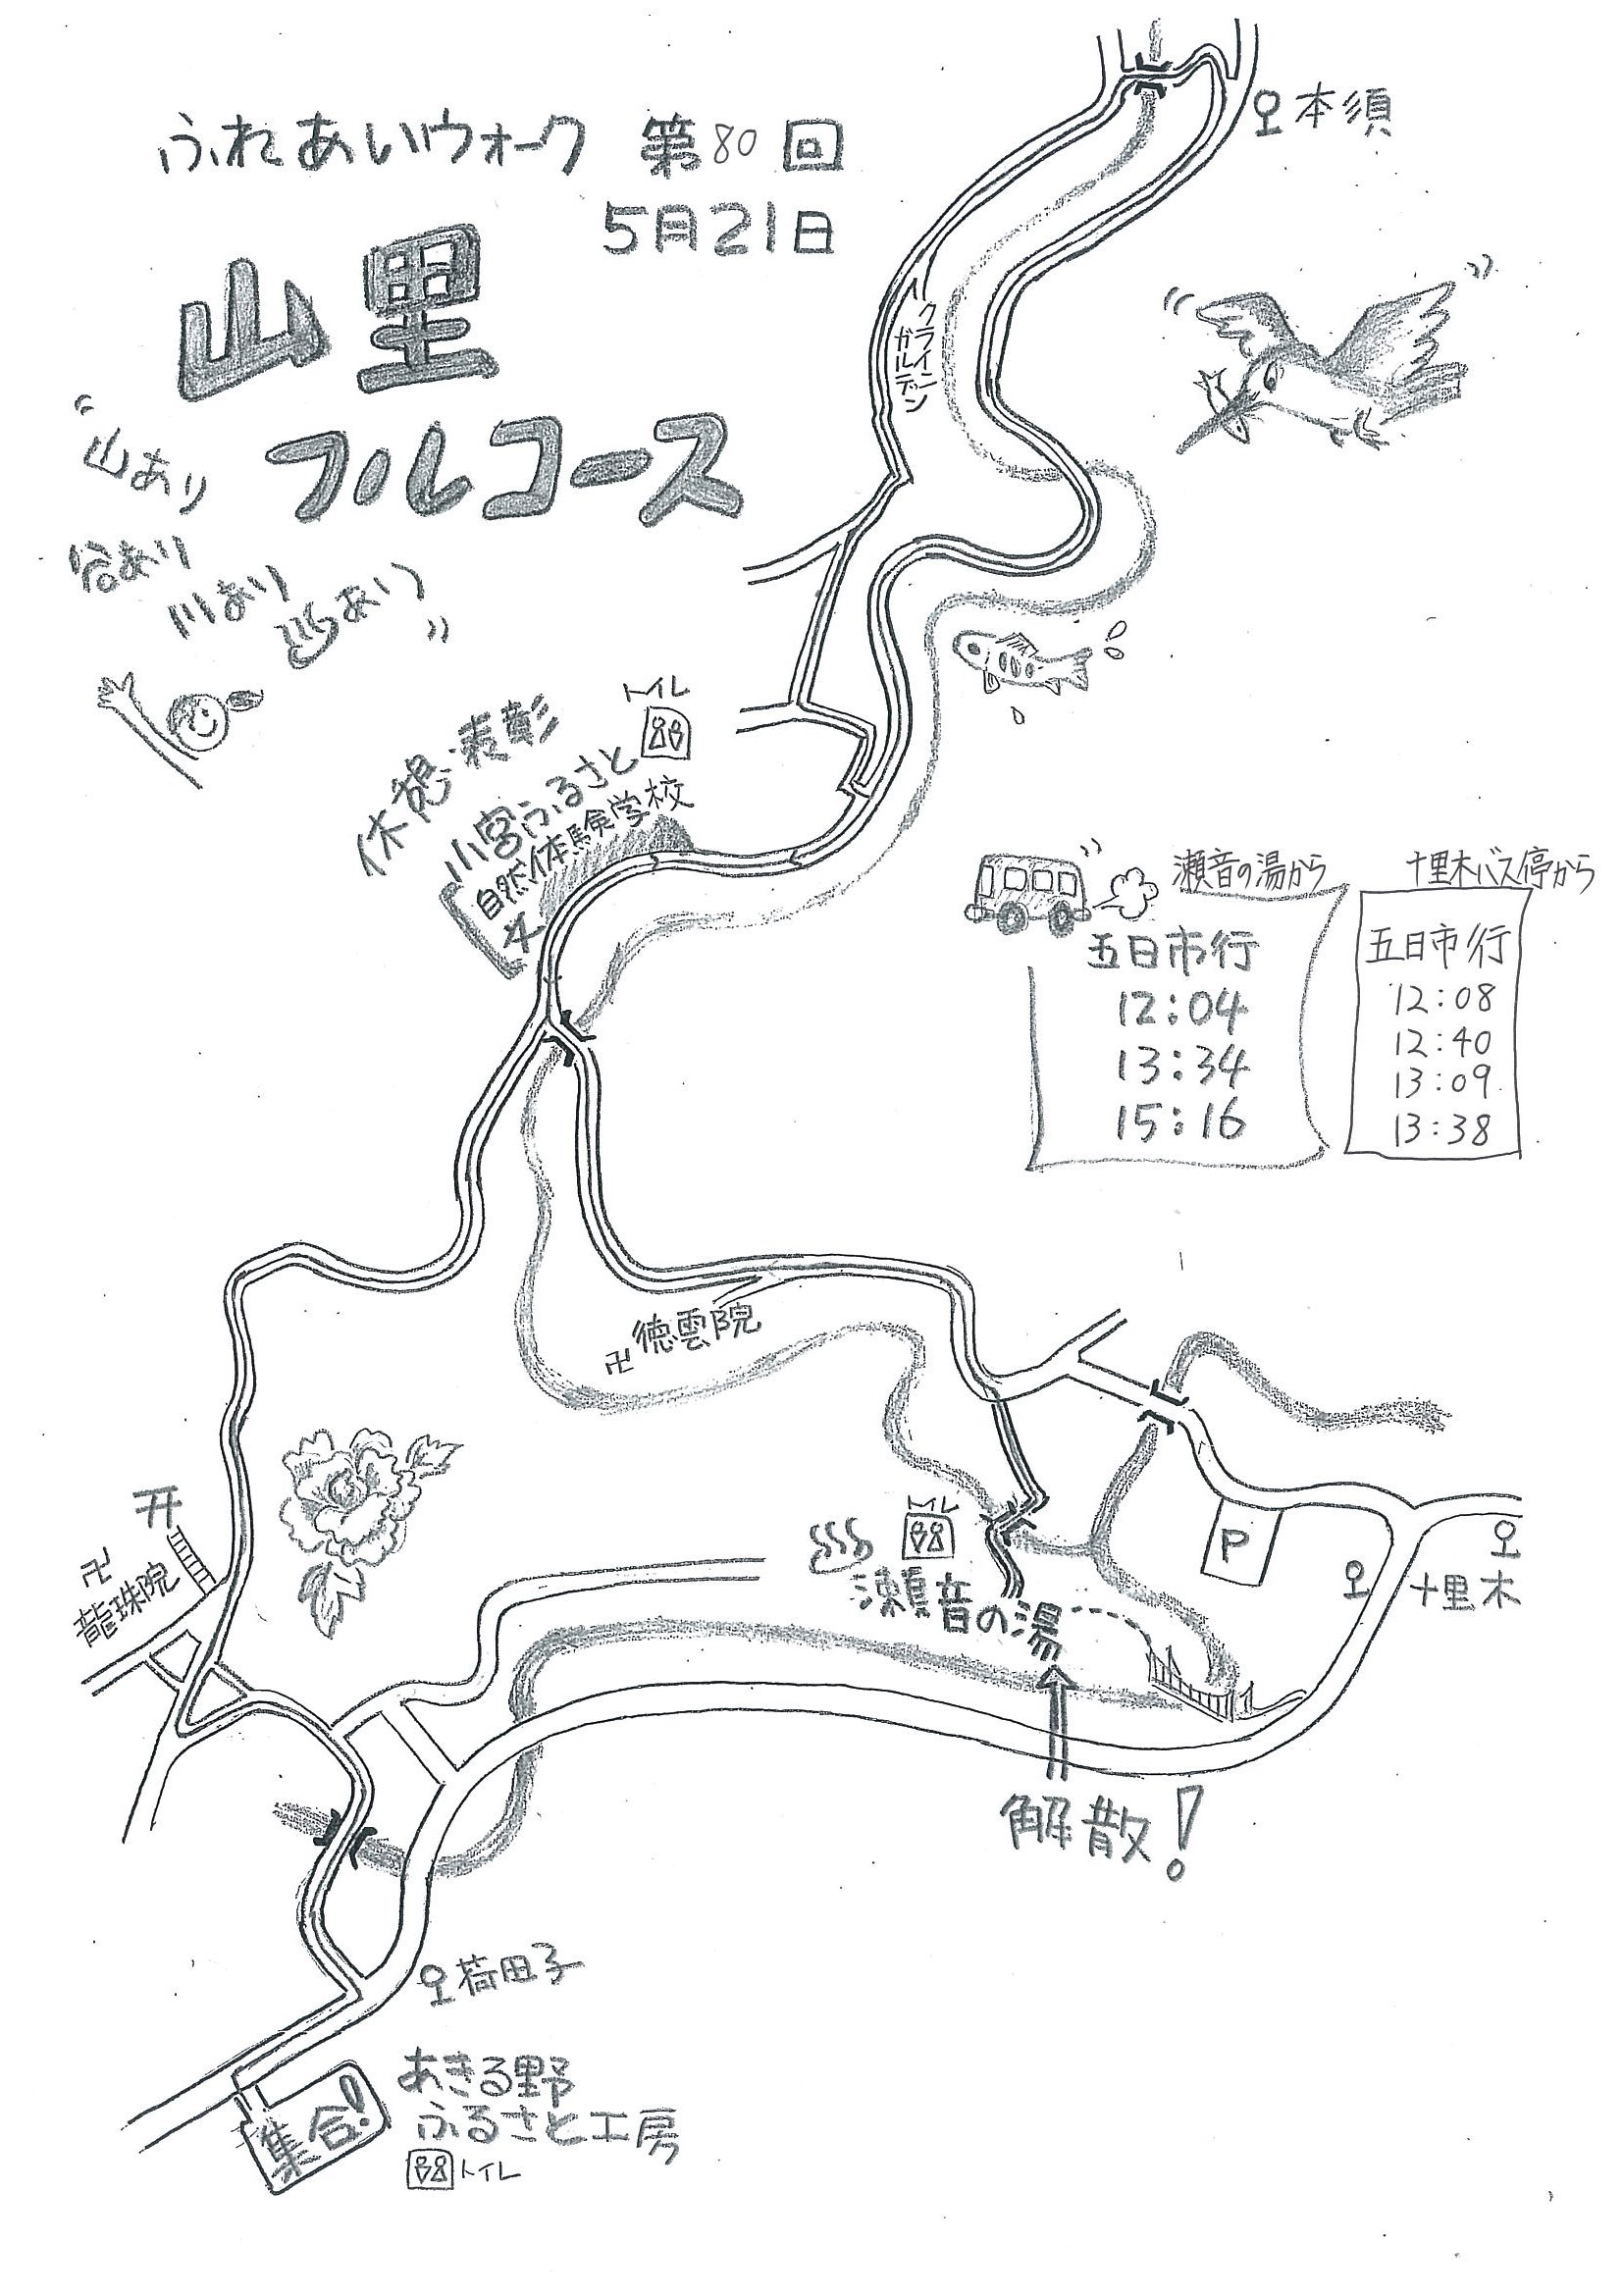 ふれあいウォーク 第80回
5月21日
山里
フルコース
"山あり
谷あり
川あり
"
本須
クライン
ガルテン
トイレ
休憩・表彰
小宮ふるさと
自然体験学校
瀬音の湯から
五日市行
12:04
13:34
15:16
十里木バス停から
五日市行
12:08
12:40
13:09
13:38
卍 徳雲院
卍
龍珠院
トイレ
瀬音の湯
P
十里木
解散!
荷田子
集合!
あきる野
ふるさと工房
トイレ